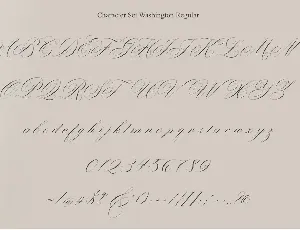 Character Set Washington Regular
A B C D E F G H I J K L M N
O P Q R S T U V W X Y Z
a b c d e f g h i j k l m n o p q r s t u v w x y z
0 1 2 3 4 5 6 7 8 9